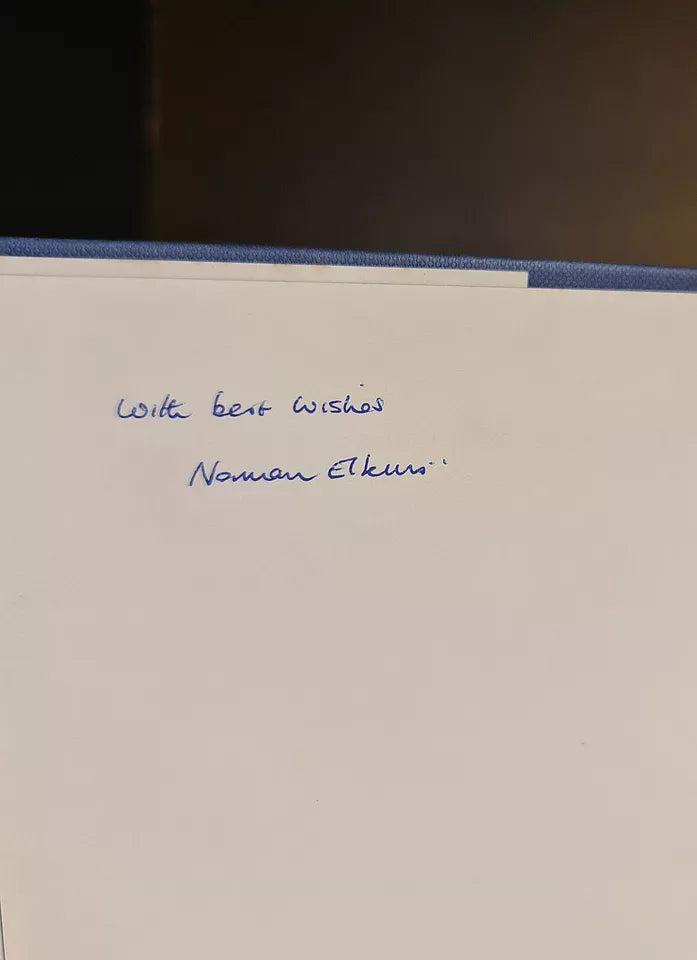 With best wishes
Norman Elkins